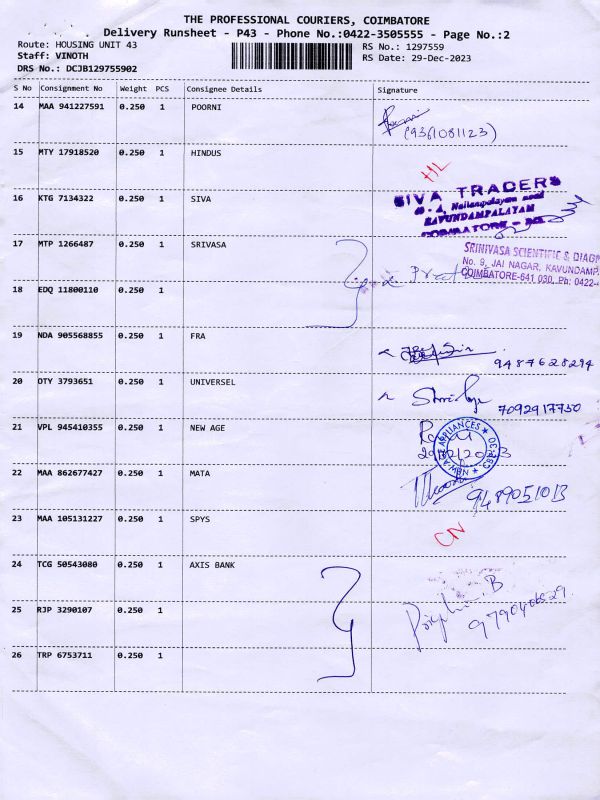 THE PROFESSIONAL COURIERS, COIMBATORE
Delivery Runsheet - P43 - Phone No.:0422-3505555 - Page No.:2
Route: HOUSING UNIT 43
Staff: VINOTH
DRS No.: DCJB129755902
RS No.: 1297559
RS Date: 29-Dec-2023
S No Consignment No Weight PCS Consignee Details Signature
14 MAA 941227591 0.250 1 POORNI
(9361081123)
15 MTY 17918520 0.250 1 HINDUS
HL
16 KTG 7134322 0.250 1 SIVA
SIVA TRADERS
KAVUNDAMPALAYAM
COIMBATORE -
17 MTP 1266487 0.250 1 SRIVASA
SRINIVASA SCIENTIFIC & DIAGN
No. 9, JAI NAGAR, KAVUNDAMP
COIMBATORE-641 030. Ph: 0422-
18 EDQ 11800110 0.250 1
19 NDA 905568855 0.250 1 FRA
9487628294
20 OTY 3793651 0.250 1 UNIVERSEL
7092917750
21 VPL 945410355 0.250 1 NEW AGE
NEW APPLIANCES
22 MAA 862677427 0.250 1 MATA
9489051013
23 MAA 105131227 0.250 1 SPYS
CN
24 TCG 50543080 0.250 1 AXIS BANK
25 RJP 3290107 0.250 1
26 TRP 6753711 0.250 1